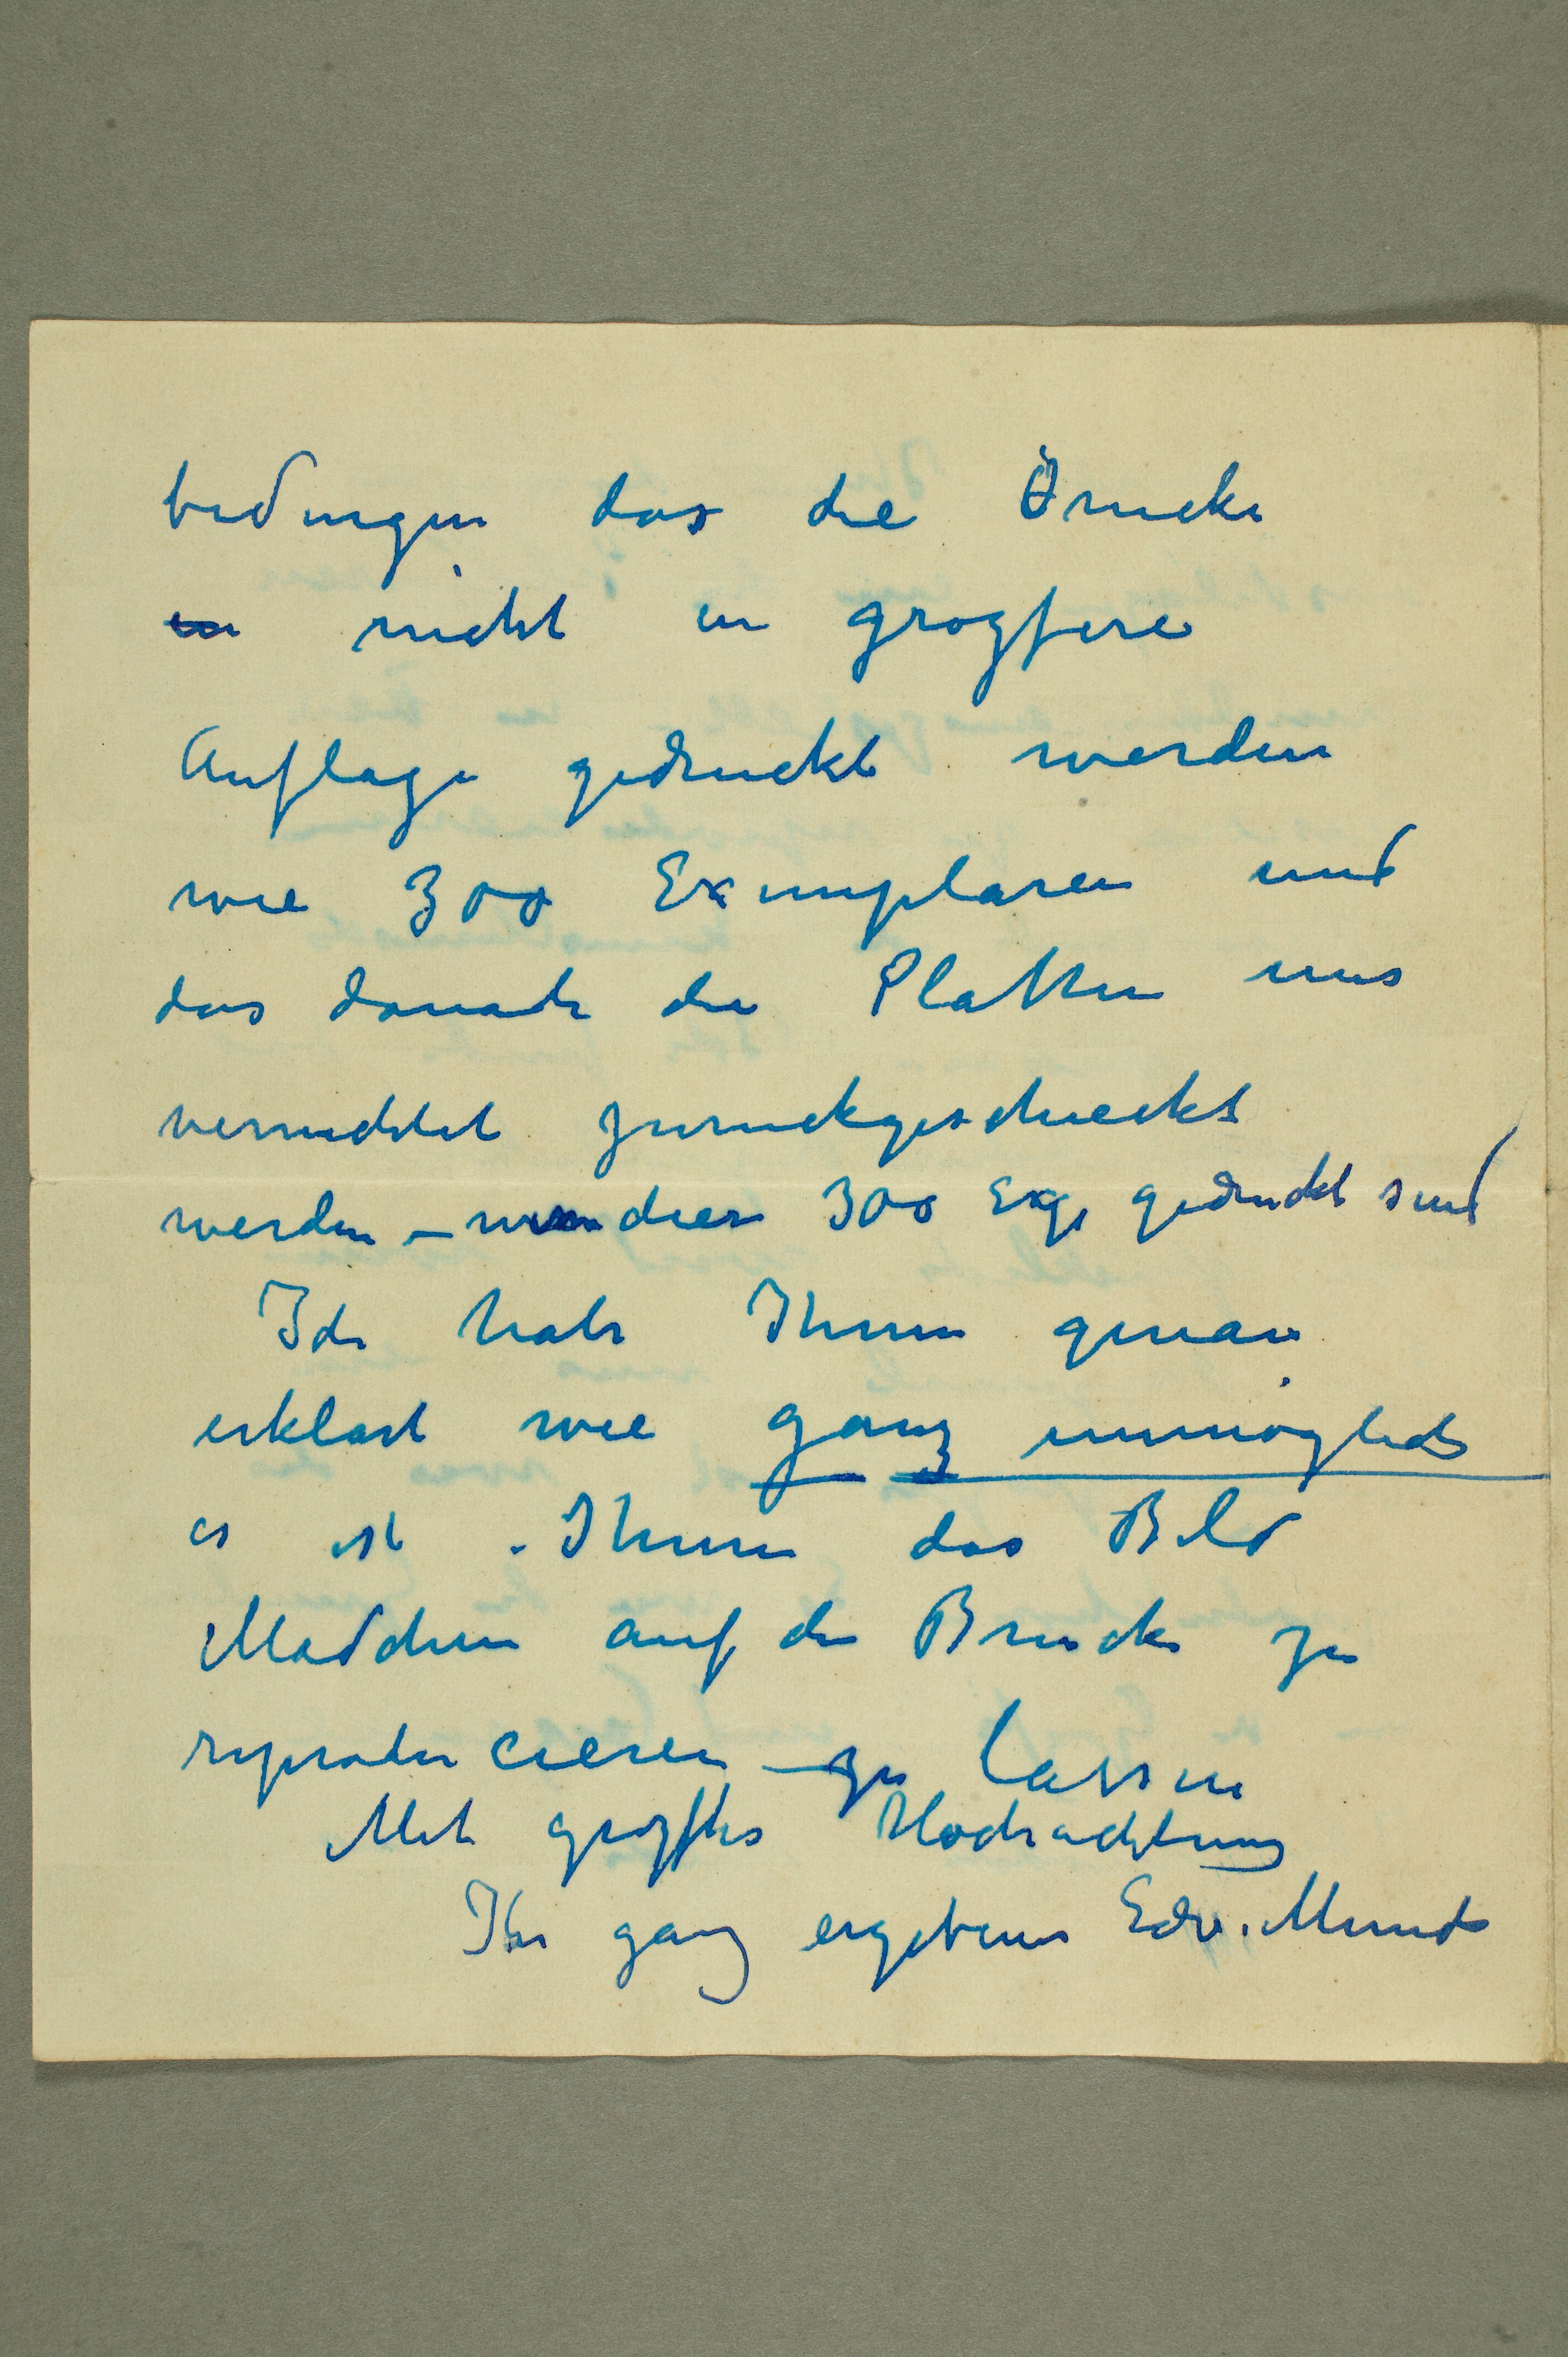 bedingen das die Drucke
in nicht in grozsere
Auflage gedruckt werden
wie 300 Exemplaren und
das danach die Platten uns
vernichtet zuruckgeschickt
werden – wenn diese 300 Exp gedruckt sind
Ich habe Ihnen genau
erklart wie ganz unmöglich
es ist Ihnen das Bild
Madchen auf der Brucke zu
reproducieren zu lassen
Mit grozster Hochachtung
Ihr ganz ergebener Edv. Munch